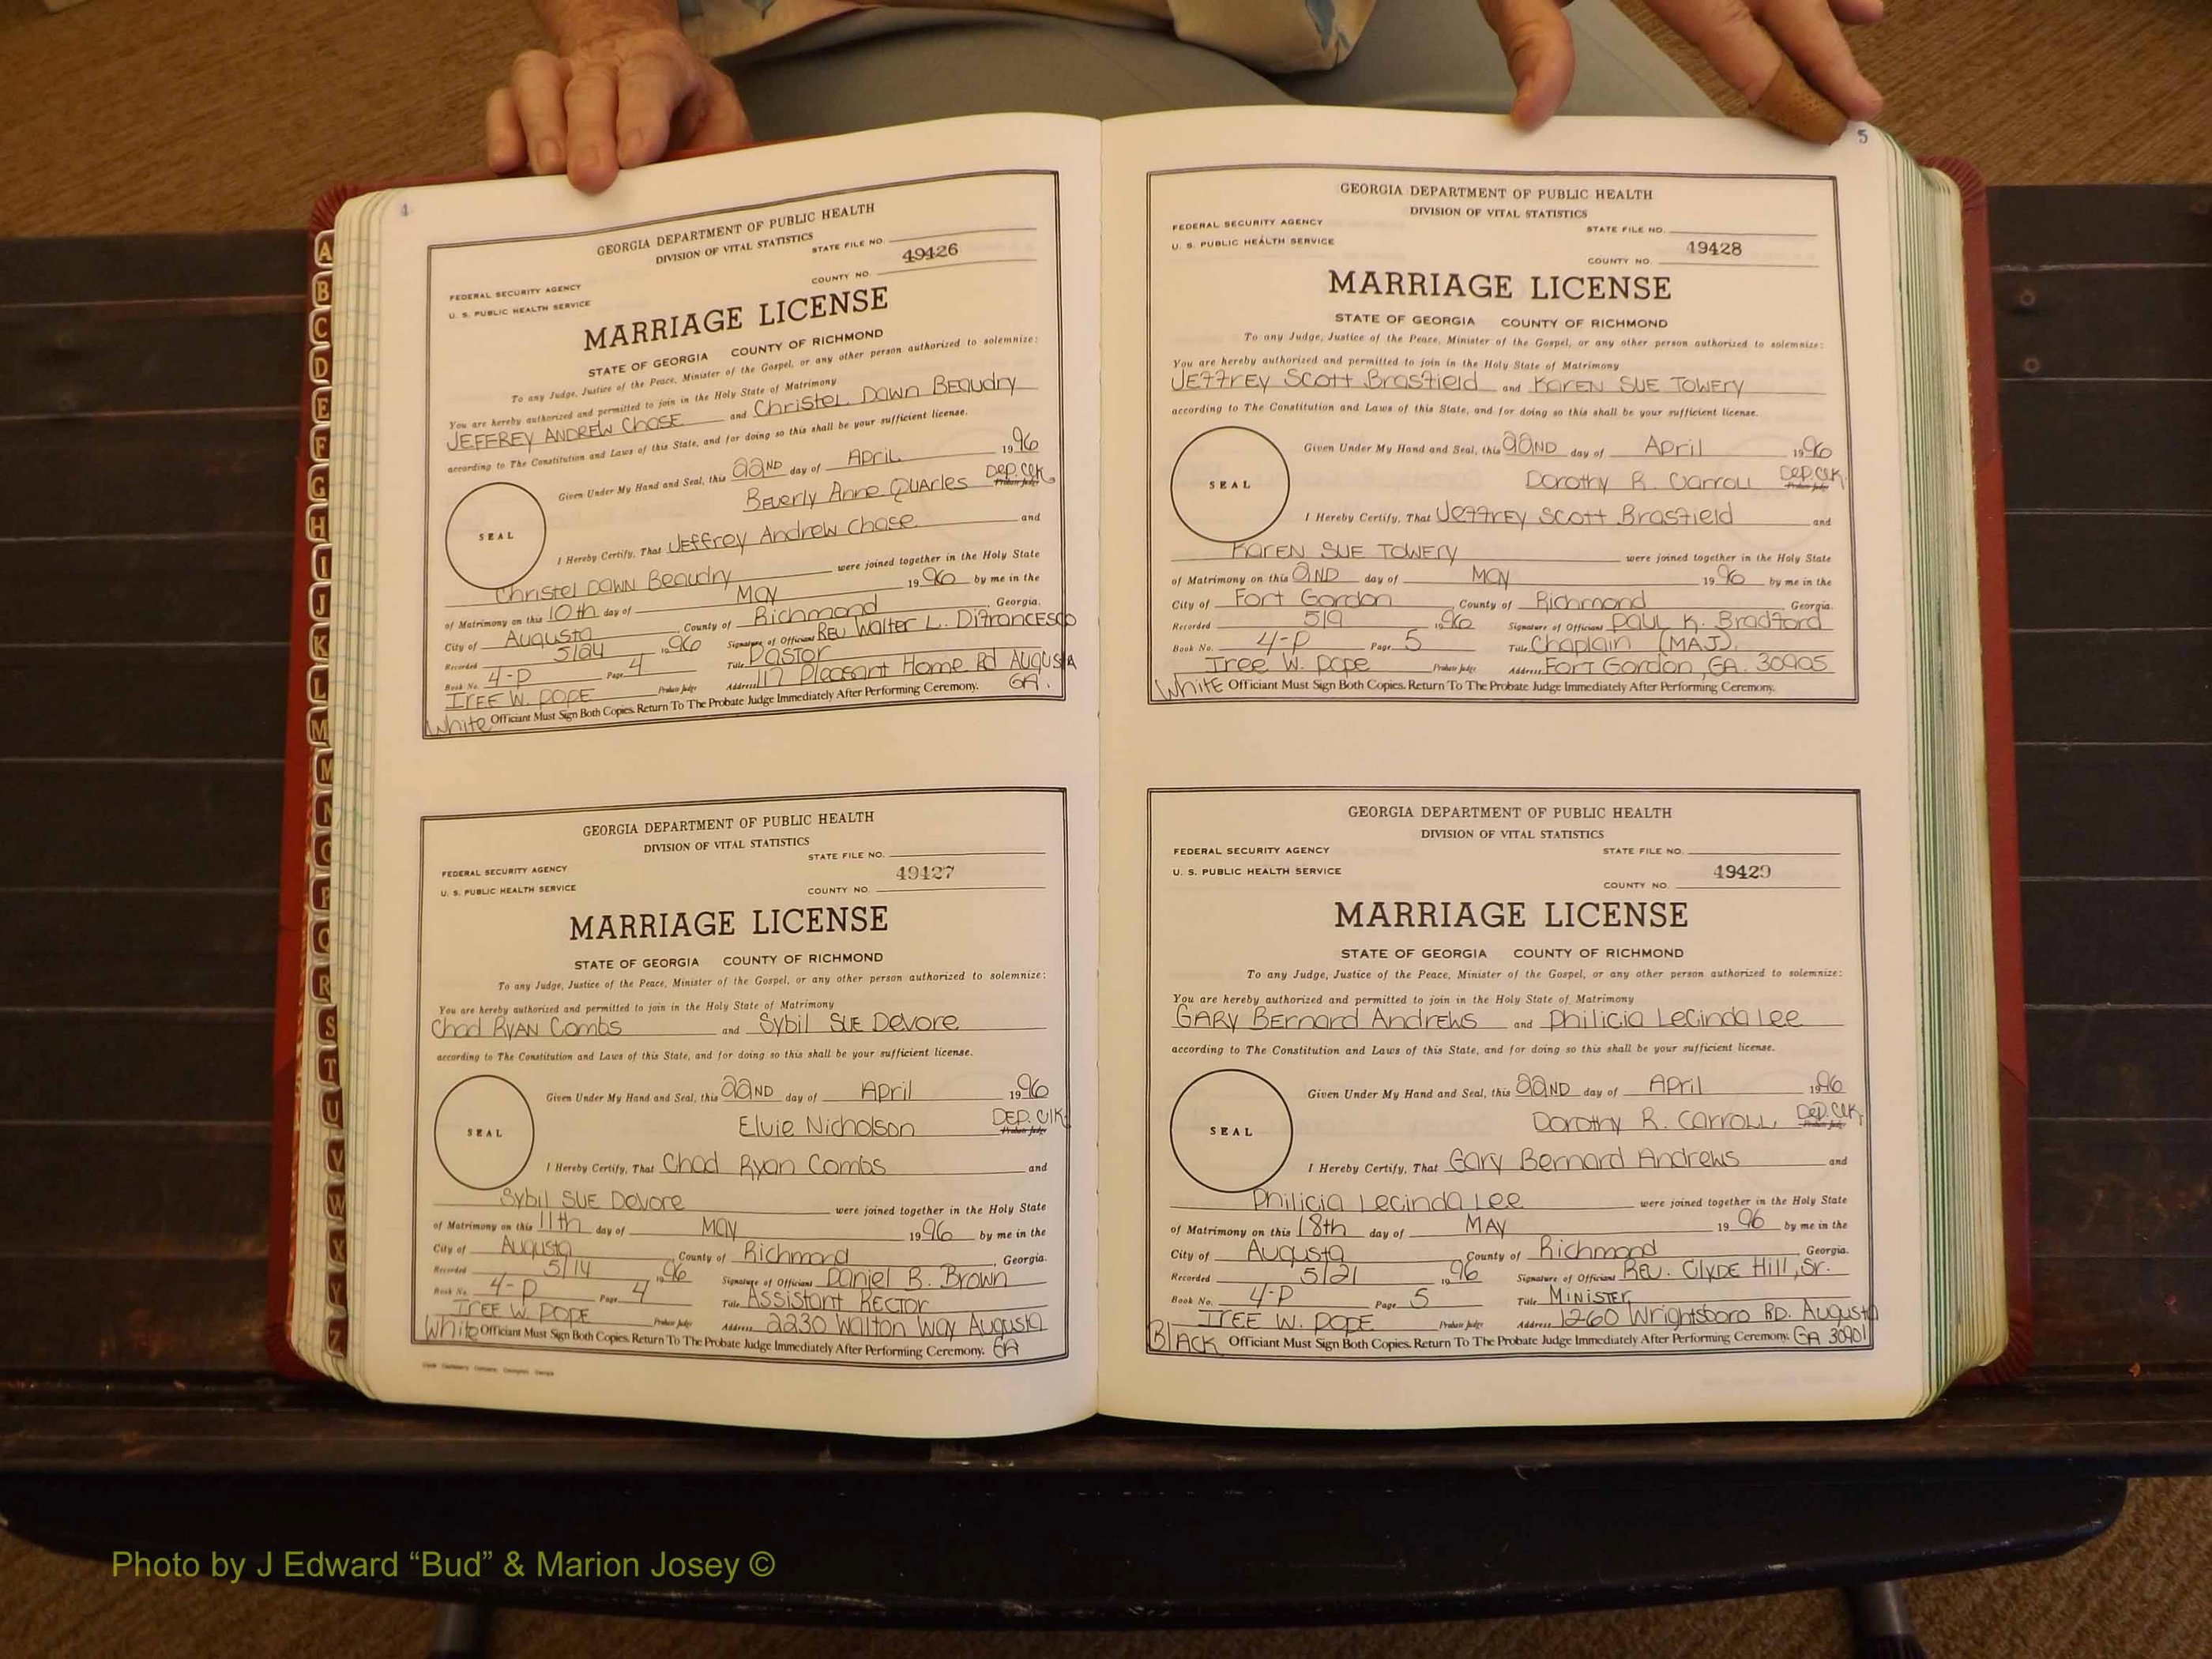 4
GEORGIA DEPARTMENT OF PUBLIC HEALTH
DIVISION OF VITAL STATISTICS
STATE FILE NO.
49426
COUNTY NO.
FEDERAL SECURITY AGENCY
U. S. PUBLIC HEALTH SERVICE
MARRIAGE LICENSE
STATE OF GEORGIA COUNTY OF RICHMOND
To any Judge, Justice of the Peace, Minister of the Gospel, or any other person authorized to solemnize:
You are hereby authorized and permitted to join in the Holy State of Matrimony
JEFFREY ANDREW Chase and Christel Dawn Beaudry
according to The Constitution and Laws of this State, and for doing so this shall be your sufficient license.
Given Under My Hand and Seal, this 22ND day of April 1996
Beverly Anne Quarles Dep. Clk
Probate Judge
SEAL
I Hereby Certify, That Jeffrey Andrew Chase and
Christel Dawn Beaudry were joined together in the Holy State
of Matrimony on this 10th day of May 1996 by me in the
City of Augusta County of Richmond, Georgia.
Recorded 5/24 1996 Signature of Officiant Rev Walter L. DiFrancesco
Book No. 4-P Page 4 Title Pastor
TREE W. POPE Probate Judge Address 117 Pleasant Home Rd Augusta
GA.
White Officiant Must Sign Both Copies. Return To The Probate Judge Immediately After Performing Ceremony.
GEORGIA DEPARTMENT OF PUBLIC HEALTH
DIVISION OF VITAL STATISTICS
FEDERAL SECURITY AGENCY STATE FILE NO.
49427
U. S. PUBLIC HEALTH SERVICE COUNTY NO.
MARRIAGE LICENSE
STATE OF GEORGIA COUNTY OF RICHMOND
To any Judge, Justice of the Peace, Minister of the Gospel, or any other person authorized to solemnize:
You are hereby authorized and permitted to join in the Holy State of Matrimony
Chad RYAN Combs and Sybil SUE Devore
according to The Constitution and Laws of this State, and for doing so this shall be your sufficient license.
Given Under My Hand and Seal, this 22ND day of April 1996
Elvie Nicholson DEP. Clk.
Probate Judge
SEAL
I Hereby Certify, That Chad Ryan Combs and
Sybil SUE Devore were joined together in the Holy State
of Matrimony on this 11th day of May 1996 by me in the
City of Augusta, County of Richmond, Georgia.
Recorded 5/14 1996 Signature of Officiant Daniel B. Brown
Book No. 4-P Page 4 Title Assistant Rector
TREE W. POPE Probate Judge Address 2230 Walton Way Augusta
White Officiant Must Sign Both Copies. Return To The Probate Judge Immediately After Performing Ceremony. GA
5
GEORGIA DEPARTMENT OF PUBLIC HEALTH
DIVISION OF VITAL STATISTICS
FEDERAL SECURITY AGENCY STATE FILE NO.
U. S. PUBLIC HEALTH SERVICE 49428
COUNTY NO.
MARRIAGE LICENSE
STATE OF GEORGIA COUNTY OF RICHMOND
To any Judge, Justice of the Peace, Minister of the Gospel, or any other person authorized to solemnize:
You are hereby authorized and permitted to join in the Holy State of Matrimony
Jeffrey Scott Brasfield and KAREN SUE TOWERY
according to The Constitution and Laws of this State, and for doing so this shall be your sufficient license.
Given Under My Hand and Seal, this 22ND day of April 1996
Dorothy R. Carroll Dep. Clk.
Probate Judge
SEAL
I Hereby Certify, That Jeffrey Scott Brasfield and
KAREN SUE TOWERY were joined together in the Holy State
of Matrimony on this 2ND day of May 1996 by me in the
City of Fort Gordon, County of Richmond, Georgia.
Recorded 5/9 1996 Signature of Officiant Paul K. Bradford
Book No. 4-P Page 5 Title Chaplain (MAJ).
Tree W. Pope Probate Judge Address Fort Gordon, GA. 30905
White Officiant Must Sign Both Copies. Return To The Probate Judge Immediately After Performing Ceremony.
GEORGIA DEPARTMENT OF PUBLIC HEALTH
DIVISION OF VITAL STATISTICS
FEDERAL SECURITY AGENCY STATE FILE NO.
U. S. PUBLIC HEALTH SERVICE 49429
COUNTY NO.
MARRIAGE LICENSE
STATE OF GEORGIA COUNTY OF RICHMOND
To any Judge, Justice of the Peace, Minister of the Gospel, or any other person authorized to solemnize:
You are hereby authorized and permitted to join in the Holy State of Matrimony
GARY Bernard Andrews and Philicia Lecinda Lee
according to The Constitution and Laws of this State, and for doing so this shall be your sufficient license.
Given Under My Hand and Seal, this 22ND day of April 1996
Dorothy R. Carroll Dep. Clk.
Probate Judge
SEAL
I Hereby Certify, That Gary Bernard Andrews and
Philicia Lecinda Lee were joined together in the Holy State
of Matrimony on this 18th day of MAY 1996 by me in the
City of Augusta County of Richmond, Georgia.
Recorded 5/21 1996 Signature of Officiant REV. Clyde Hill, Sr.
Book No. 4-P Page 5 Title MINISTER
TREE W. POPE Probate Judge Address 1260 Wrightsboro RD. Augusta
BLACK Officiant Must Sign Both Copies. Return To The Probate Judge Immediately After Performing Ceremony. GA 30901
A
B
C
D
E
F
G
H
I
J
K
L
M
M
N
O
P
Q
R
S
T
U
V
W
X
Y
Z
Photo by J Edward “Bud” & Marion Josey ©